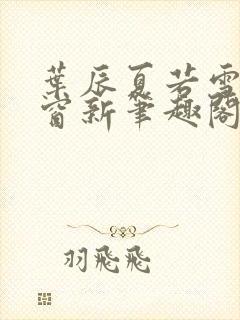 葉辰夏若雪
窗新筆趣閣
羽飛飛